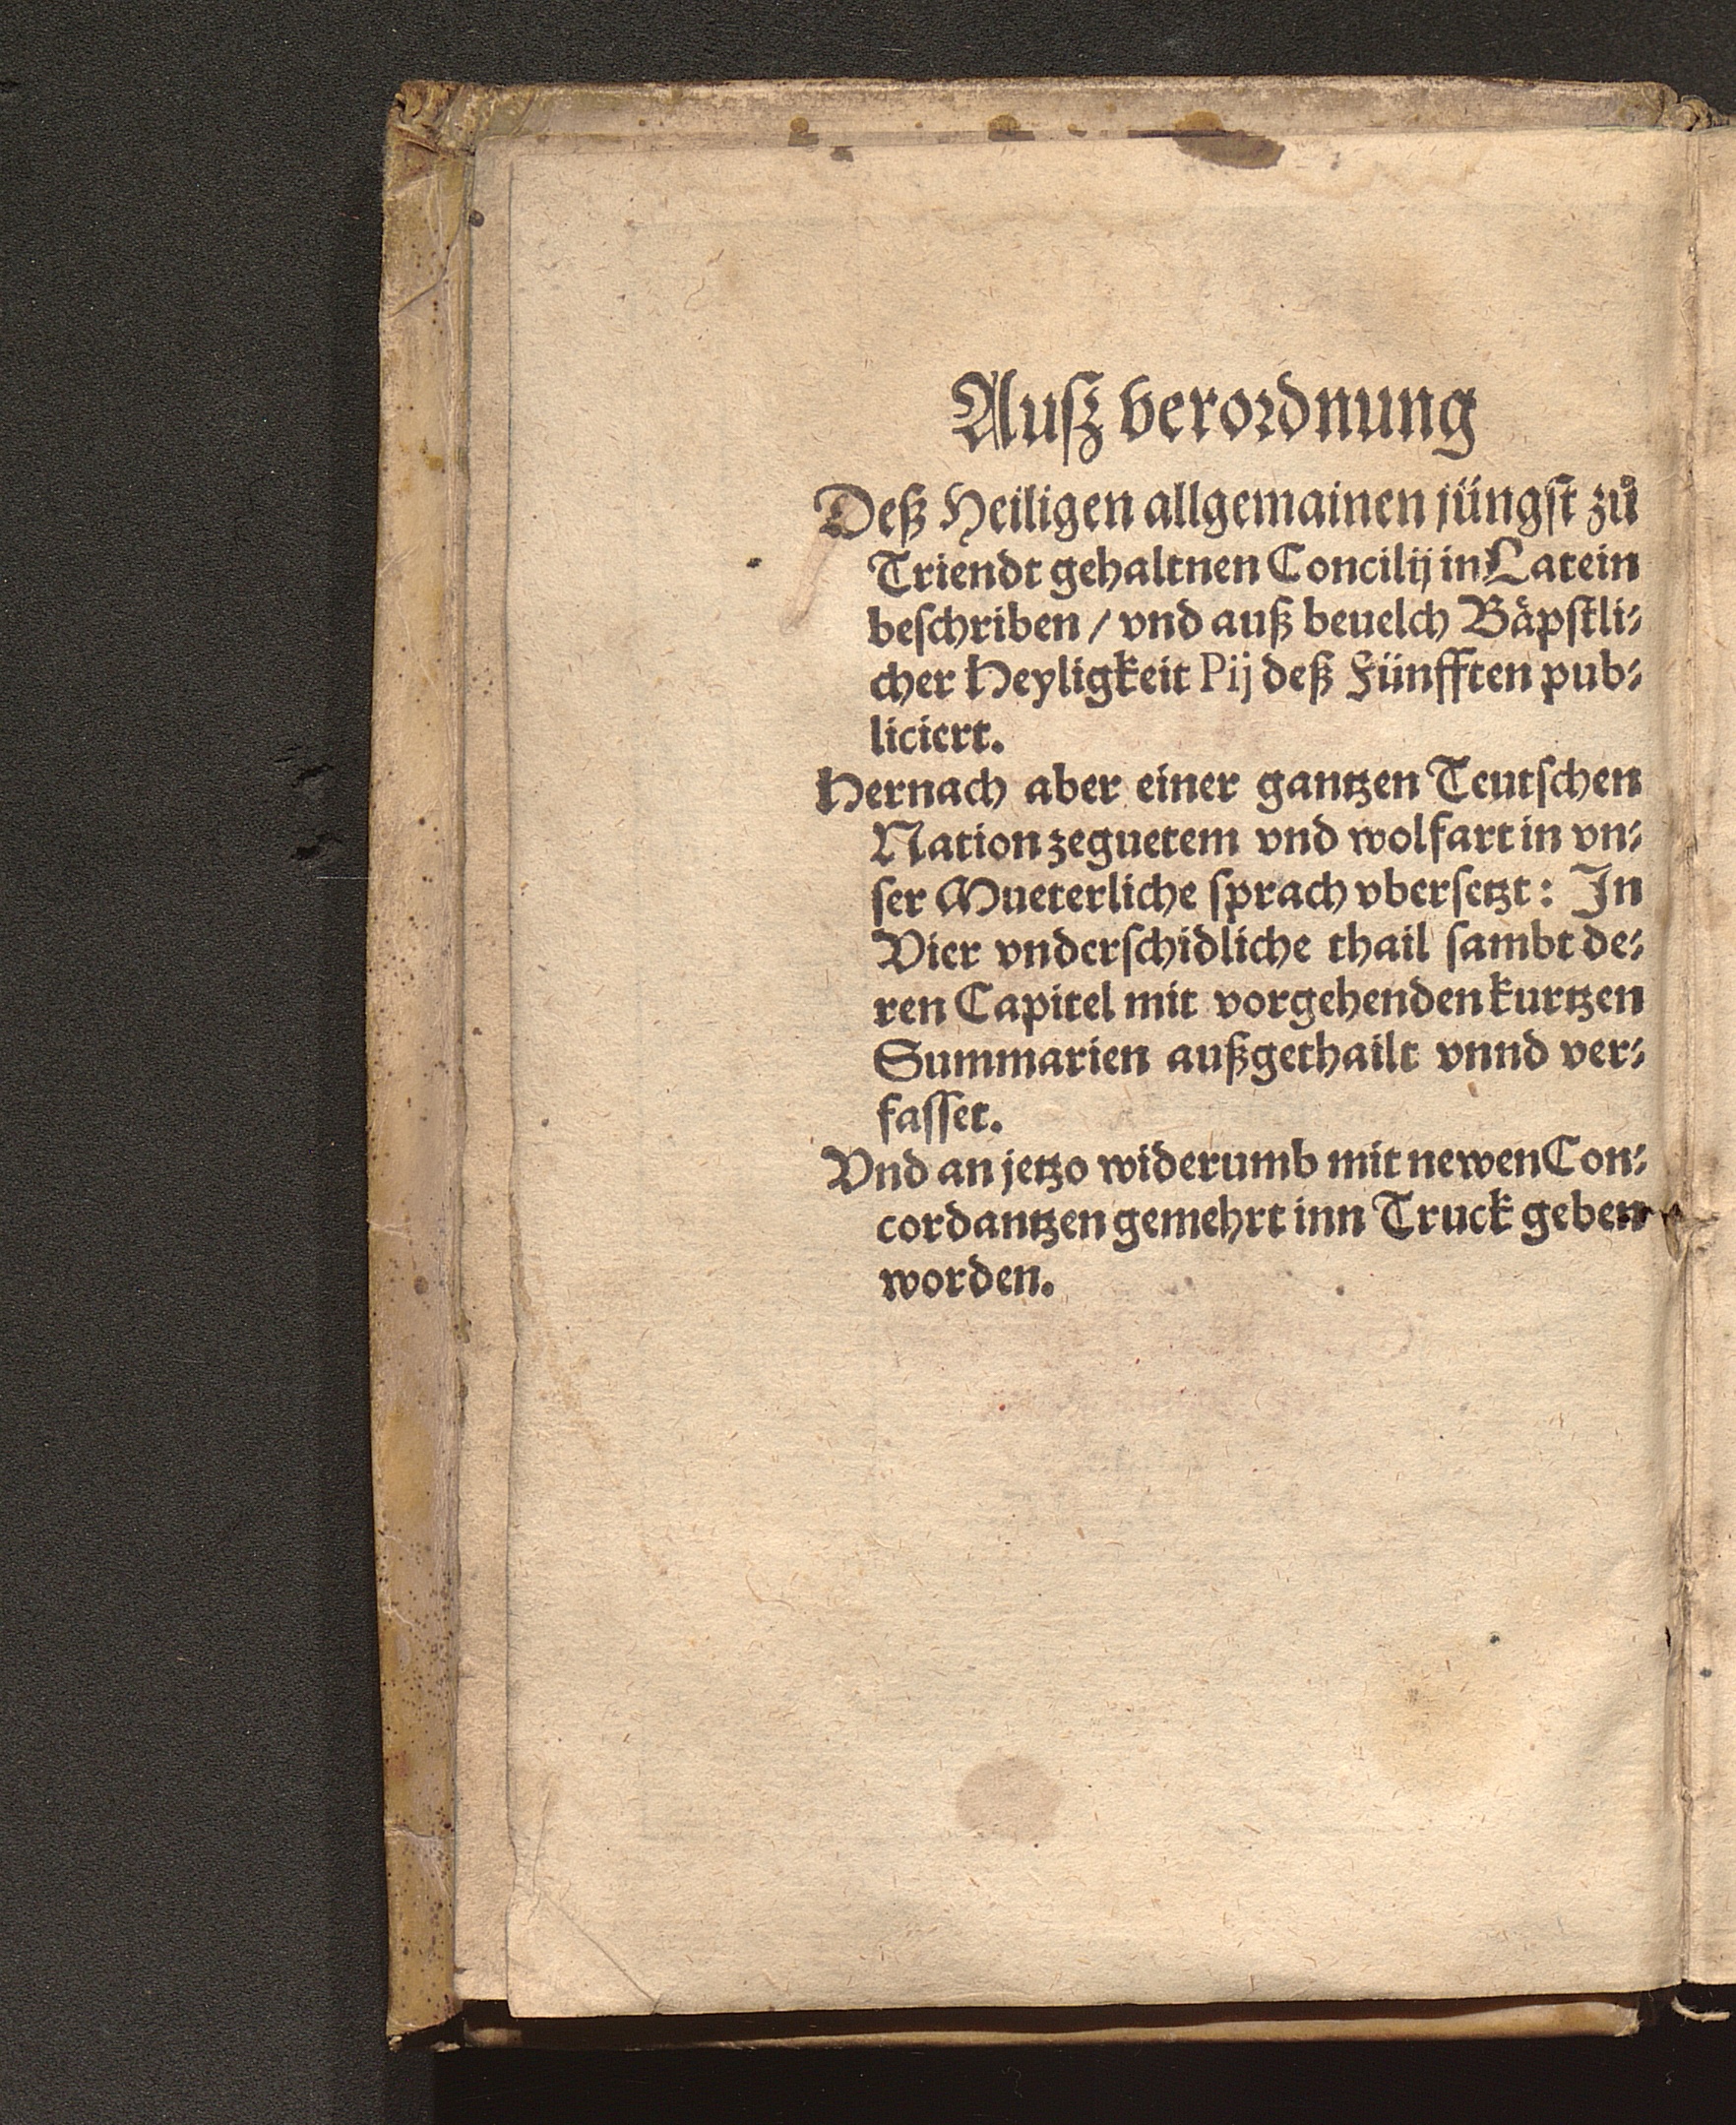 Auſz verordnung
Deß Heiligen allgemainen jüngſt zů
Triendt gehaltnen Concilij in Latein
beſchriben / vnd auß beuelch Bäpſtli⸗
cher Heyligkeit Pij deß Fünfften pub⸗
liciert.
Hernach aber einer gantzen Teutſchen
Nation zeguetem vnd wolfart in vn⸗
ſer Mueterliche ſprach vberſetzt: In
Vier vnderſchidliche thail ſambt de⸗
ren Capitel mit vorgehenden kurtzen
Summarien außgethailt vnnd ver⸗
faſſet.
Vnd an jetzo widerumb mit newen Con⸗
cordantzen gemehrt inn Truck geben
worden.